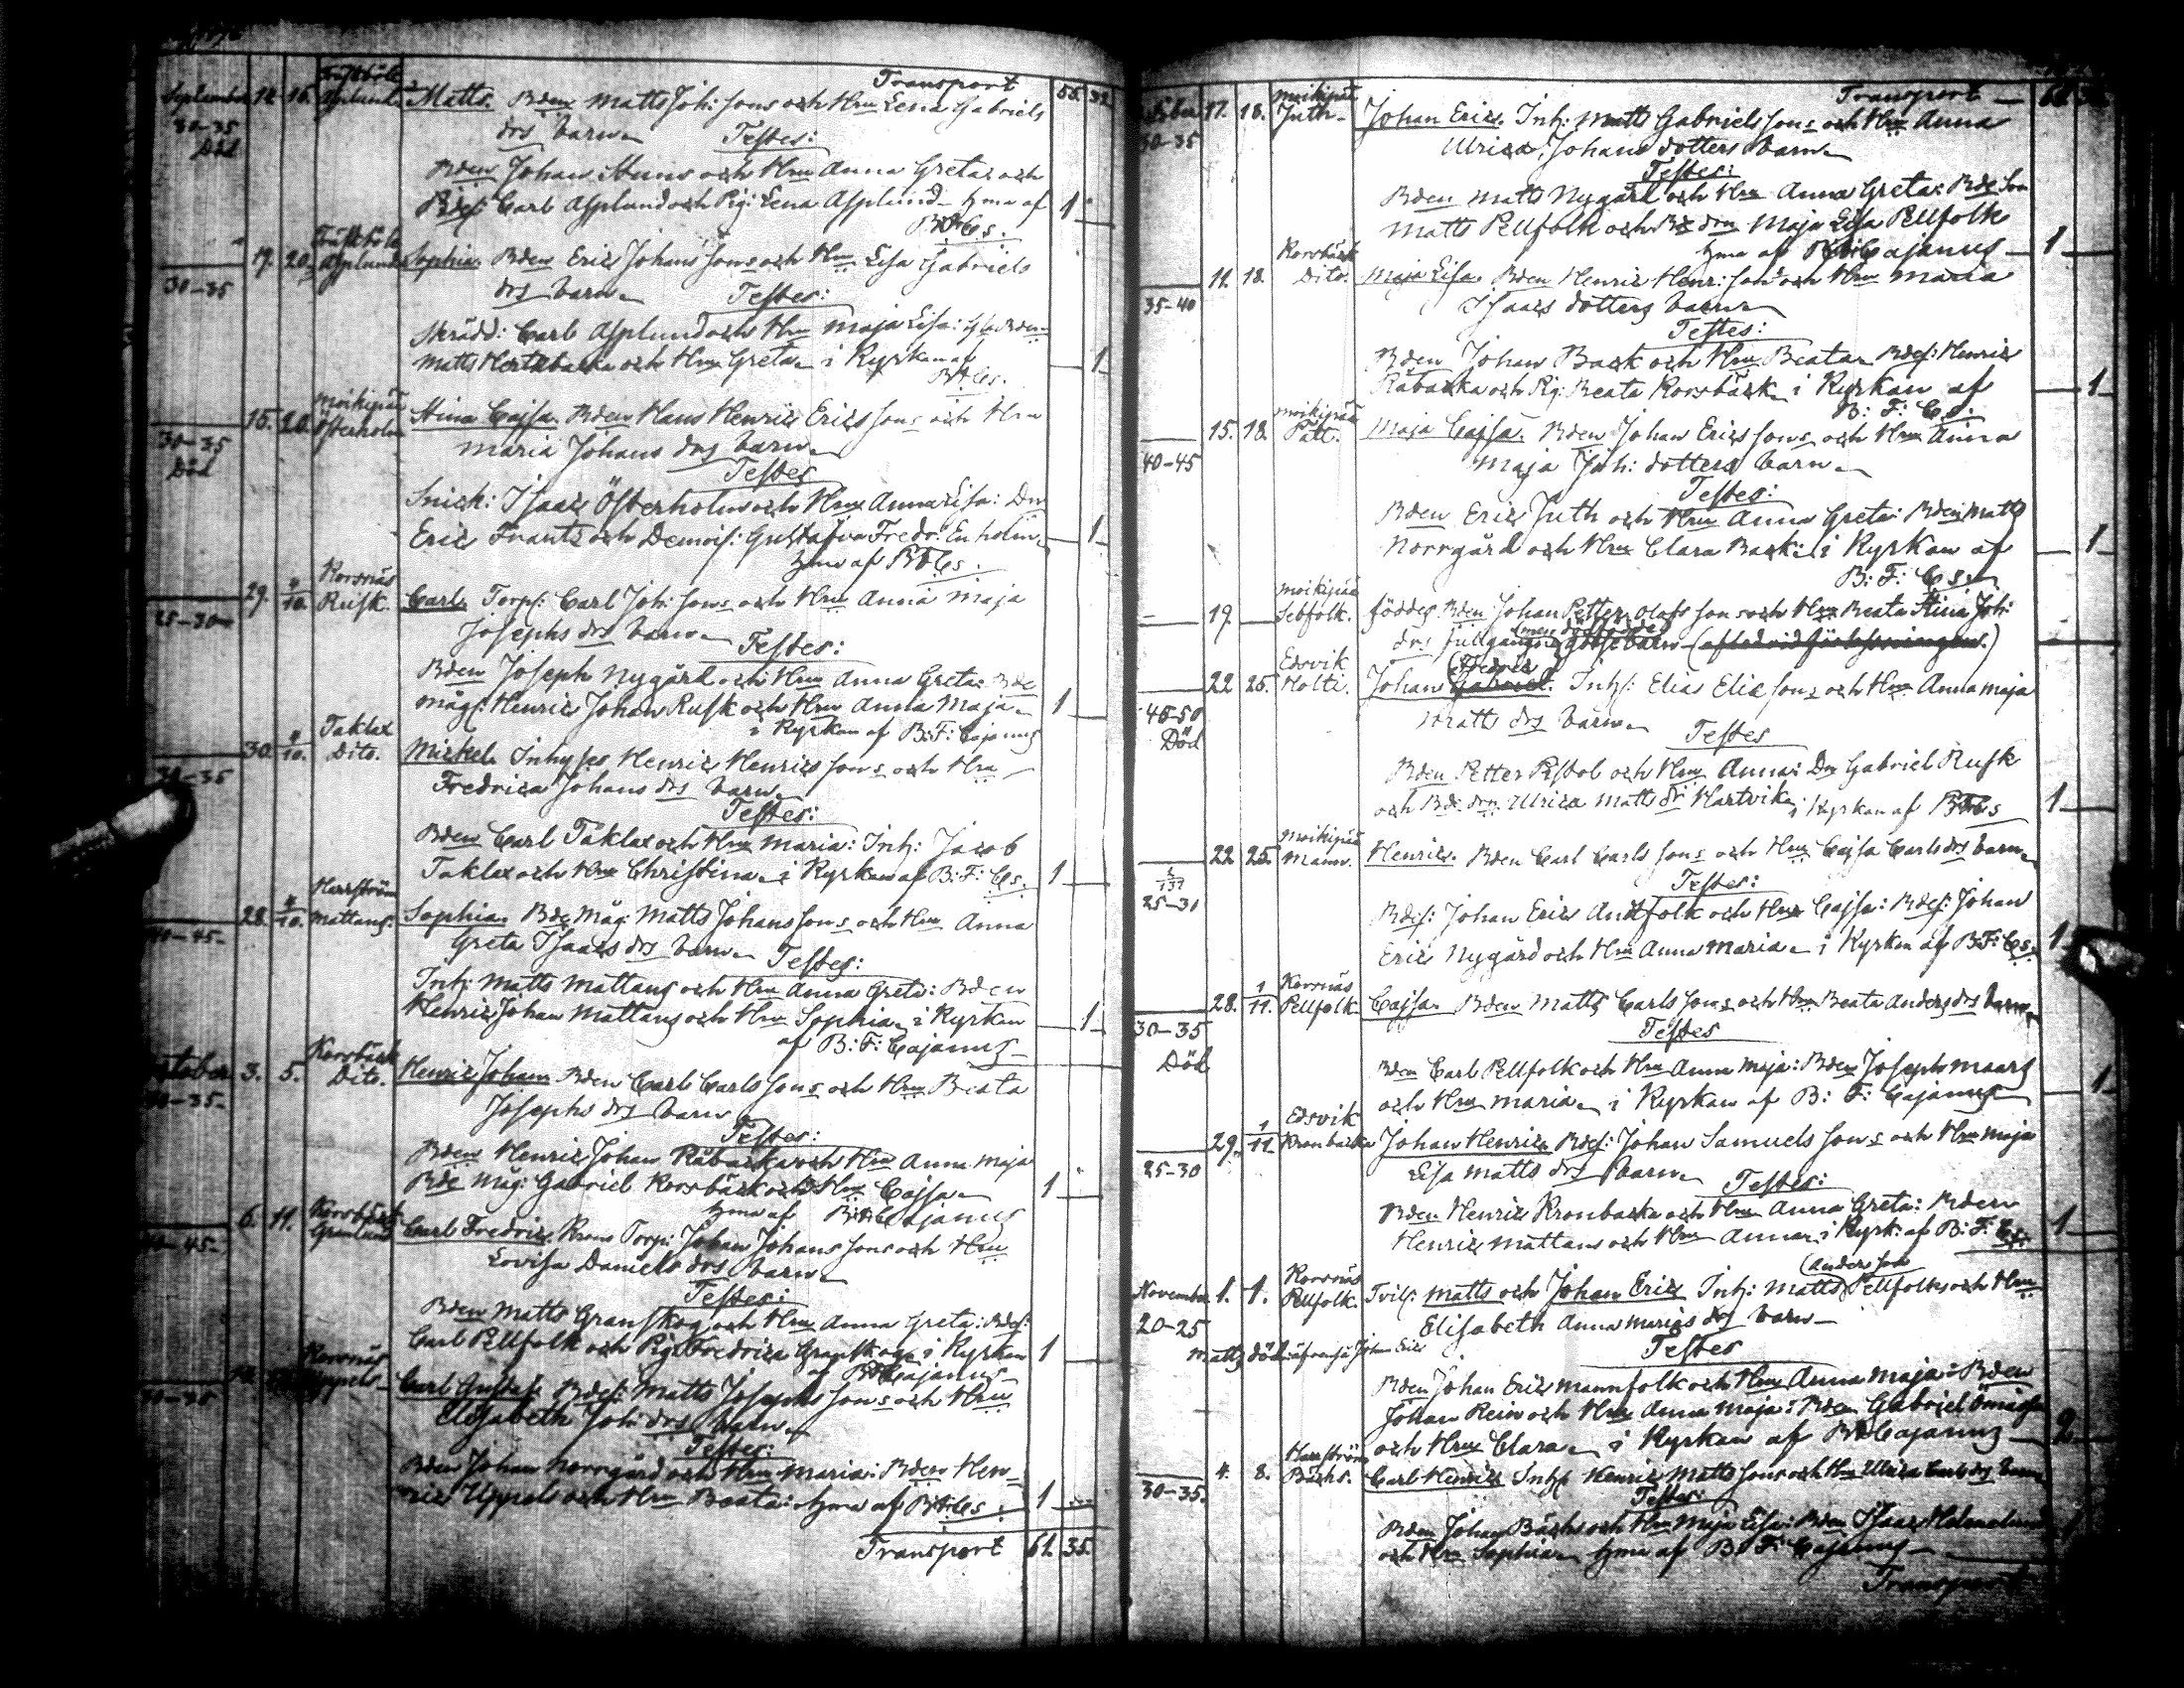 Transport 55. 32
September 12. 16. Träskböle Asplund. Matts. Bden Matts Joh: Sons och Hru Lena Gabriels
30–35 drs barn. Testes:
Död
Bden Johan Ituns och Hru Anna Greta: och
Bdes: Carl Asplund och Pig: Lena Asplund hema af 1
BFCs.
17. 20. Träskböle Asplund Sophia. Bden Eric Johans Sons och Hru Lisa Gabriels
30–35 drs barn. Testes:
Skrädd: Carl Asplund och Hru Maja Lisa: Bden
Matts Hertzbacka och Hru Greta i Kyrkan af 1
BFCs.
15. 20. Moikipää Österholm Stina Cajsa. Bden Hans Henric Erics Sons och Hru
30–35 Maria Johans drs barn.
Död Testes
Snick: Isaac Österholm och Hru Anna Lisa: Dr
Eric Frants och Demois: Gustafva Fredr: Enholm 1
hema af BFCs.
29. 4/10. Korsnäs Rusk. Carl. Torp: Carl Joh: Sons och Hru Anna Maja
25–30 Josephs drs barn. Testes:
Bden Joseph Nygård och Hru Anna Greta: Bde
måg: Henric Johan Rusk och Hru Anna Maja 1
i Kyrkan af B: F: Cajanus
30. 4/10. Taklax Dito. Mickel. Inhyses Henric Henrics Sons och Hru
30–35 Fredrica Johans drs barn.
Testes:
Bden Carl Taklax och Hru Maria: Inh: Jacob
Taklax och Hru Christina i Kyrkan af B: F: Cs. 1
28. 4/10. Harrström Mattans. Sophia. Bde Måg: Matts Johans Sons och Hru Anna
40–45. Greta Isaacs drs barn. Testes:
Inh: Matts Mattans och Hru Anna Greta: Bden
Henric Johan Mattans och Hru Sophia i Kyrkan 1
af B: F: Cajanus
October 3. 5. Korsbäck Dito. Henric Johan Bden Carl Carls Sons och Hru Beata
30–35. Josephs drs barn
Testes:
Bden Henric Johan Råbacka och Hru Anna Maja
Bde Måg: Gabriel Korsbäck och Hru Cajsa 1
hema af BFCajanus
6. 11. Korsbäck Granlund Carl Fredric Krono Torp: Johan Johans Sons och Hru
40–45. Lovisa Daniels drs barn
Testes:
Bden Matts Granskog och Hru Anna Greta: Bdes:
Carl Pellfolk och Pig: Fredrica Granskog i Kyrkan 1
af BFCajanus
Korsnäs Uppels Carl Gustaf. Bdes: Matts Josephs Sons och Hru
30–35 Elisabeth Joh: drs barn
Testes:
Bden Johan Norrgård och Hru Maria: Bden Hen-
ric Uppels och Hru Beata: hema af BFCs. 1
Transport 61. 35.
Transport
October 17. 18. Moikipää Juth Johan Eric. Inh: Matts Gabriels Sons och Hru Anna
30–35 Ulrica Johans dotters barn
Testes:
Bden Matts Nygård och Hru Anna Greta: Bde Son
Matts Pellfolk och Bde dr Maja Lisa Pellfolk
hema af BFCajanus 1
11. 18. Korsbäck Dito. Maja Lisa. Bden Henric Henr: Sons och Hru Maria
35–40 Isaacs dotters barn
Testes:
Bden Johan Back och Hru Beata Bdes: Henric
Råbacka och Pig: Beata Korsbäck i Kyrkan af 1
B: F: Cs.
15. 18. Moikipää Pått. Maja Cajsa. Bden Johan Erics Sons och Hru Anna
40–45 Maja Joh: dotters barn
Testes:
Bden Eric Juth och Hru Anna Greta: Bden Matts
Norrgård och Hru Clara Back: i Kyrkan af 1
B: F: Cs.
19. Moikipää Sebfolk. föddes Bden Johan Petter Olofs Sons och Hru Beata Stina Joh:
drs fullgångne gossebarn (afled vid förlossningen.)
22. 25. Edsvik Holti. Johan (Fredric Gabriel. Inh: Elias Elie Sons och Hru Anna Maja
45–50 Matts drs barn
Död Testes
Bden Petter Pistol och Hru Anna: Dr Gabriel Rusk
och Bde dr Ulrica Matts dr Hartvik i Kyrkan af BFCs 1
22. 25. Moikipää Mann. Henric. Bden Carl Carls Sons och Hru Cajsa Carls drs barn
25–30 Testes:
Bdes: Johan Eric Antfolk och Hru Cajsa: Bdes: Johan
Eric Nygård och Hru Anna Maria i Kyrkan af B: F: Cs. 1
28. 1/11. Korsnäs Pellfolk. Cajsa Bden Matts Carls Sons och Hru Beata Anders drs barn
30–35 Testes
Död
Bden Carl Pellfolk och Hru Anna Maja: Bden Joseph Maars
och Hru Maria i Kyrkan af B: F: Cajanus 1
29. 1/11. Edsvik Kronbacka Johan Henric Bdes: Johan Samuels Sons och Hru Maja
25–30 Lisa Matts drs barn Testes:
Bden Henric Kronbacka och Hru Anna Greta: Bden
Henric Mattans och Hru Anna i Kyrk: af B: F: Cs. 1
(Anders Sons
November 1. 1. Korsnäs Pellfolk. Tvil: Matts och Johan Eric Inh: Matts Pellfolks och Hru
20–25 Elisabeth Anna Marias drs barn
Testes
Bden Johan Eric Mannfolk och Hru Anna Maja: Bden
Johan Rein och Hru Anna Maja: Bden Gabriel
och Hru Clara i Kyrkan af BFCajanus 2
4. 8. Harrström Bächs. Carl Henric Inh: Henric Matts Sons och Hru Ulrica Carls drs barn
30–35. Testes:
Bden Johan Bächs och Hru Maja Lisa: Bden Isaac
och Hru Sophia hema af B: F: Cajanus
Transport